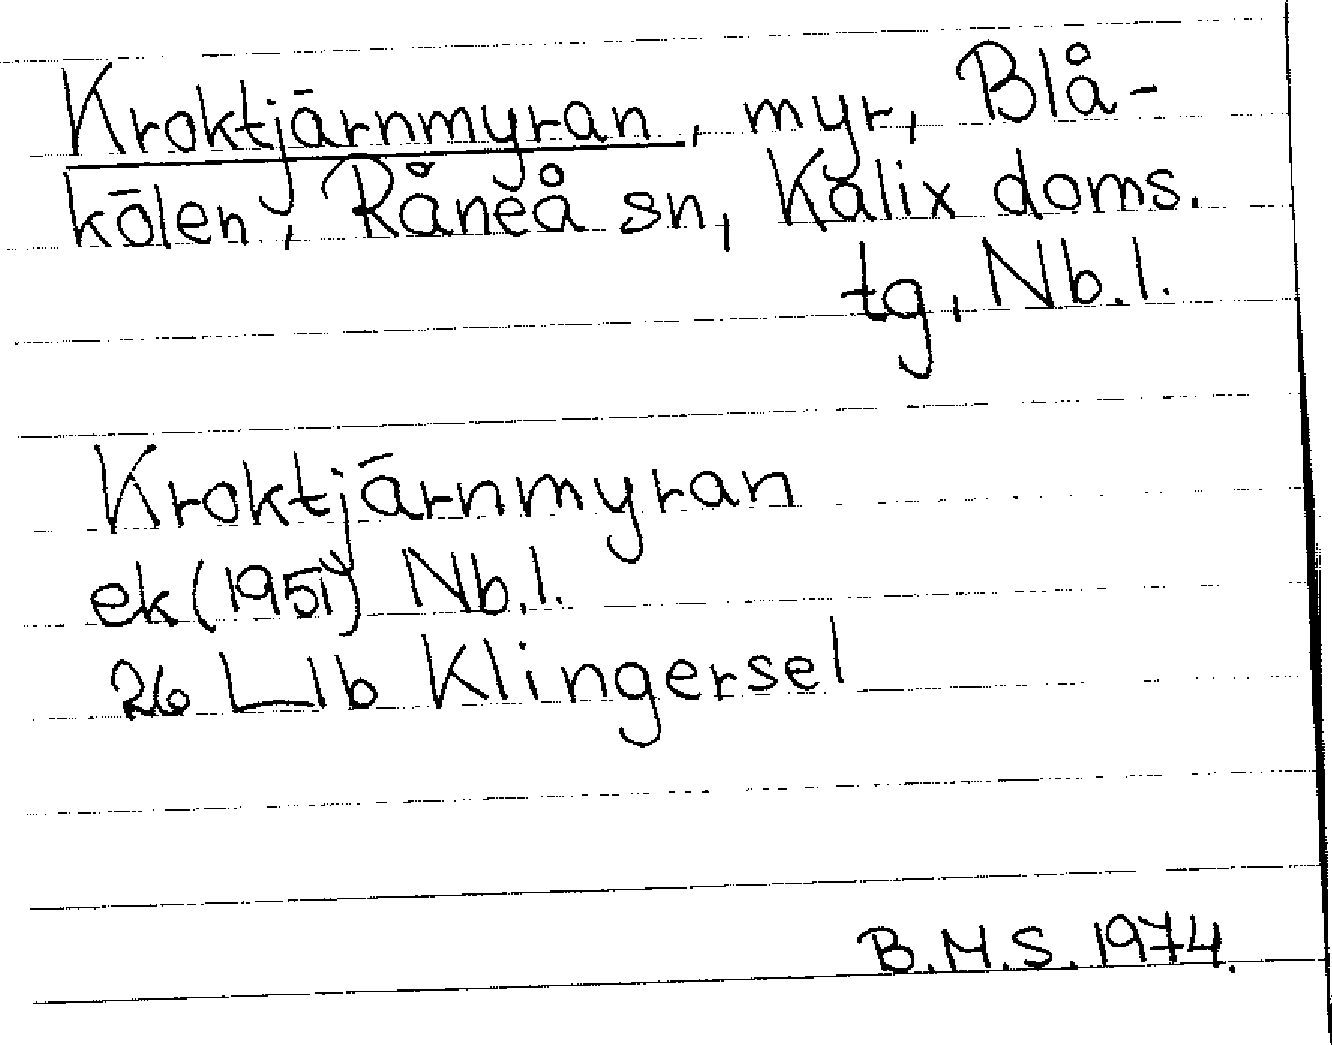 Kroktjärnmyran, myr, Blå-
kölen, Råneå sn, Kalix doms.
tg, Nb.l.
Kroktjärnmyran
ek (1951) Nb.l.
26 L 1b Klingersel
B.M.S. 1974.